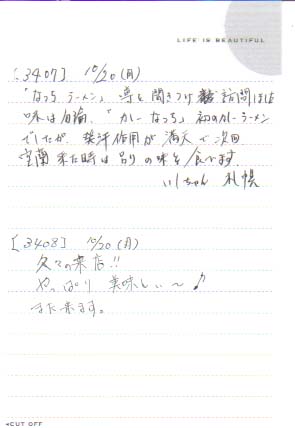 LIFE IS BEAUTIFUL
[3407] 10/20(月)
「なっち ラーメン」 噂を聞きつけ 訪問
味は勿論、「カレーなっち」 初のカレーラーメン
でしたが、発汗作用が満天で次回
室蘭来た時は別の味を食べます。
いしちゃん 札幌
[3408] 10/20(月)
久々の来店!!
やっぱり美味しい〜♪
また来ます。
◄CUT OFF